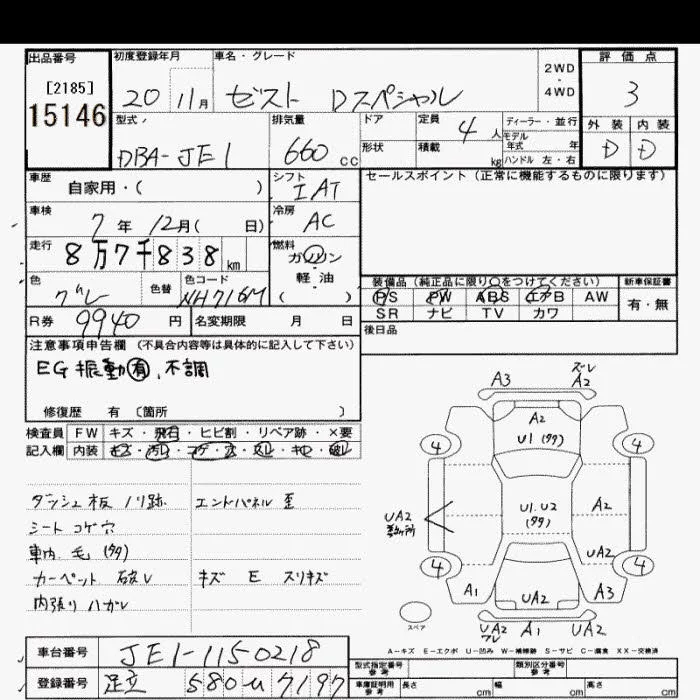 出品番号 初度登録年月 車名・グレード 評価点
[2185] 20 11月 ゼスト Dスペシャル 2WD・4WD 3
15146 型式 排気量 ドア 定員 4人 ディーラー・並行 外装 内装
DBA-JE1 660cc 形状 積載 kg モデル年式 年 ハンドル 左・右 D D
車歴 自家用・( ) シフト IAT セールスポイント(正常に機能するものに限ります)
車検 7年12月( 日) 冷房 AC
走行 8万7千838km 燃料 ガソリン・軽油( )
色 グレー 色替 色コード NH716M 装備品(純正品に限り○をつけてください) 新車保証書
PS PW ABS エアB AW 有・無
R券 9940円 名変期限 月 日 SR ナビ TV カワ
注意事項申告欄(不具合内容等は具体的に記入して下さい) 後日品
EG振動有、不調
修復歴 有〔箇所 〕
検査員 FW キズ・飛石・ヒビ割・リペア跡・×要
記入欄 内装 キズ・汚れ・コゲ・穴・スレ・キレ・破レ
ダッシュ板 ノリ跡 エンドパネル 歪
シート コゲ穴
車内 毛 (多)
カーペット 破レ キズ E スリキズ
内張り ハガレ
A3 ズレ A2
A2
U1(多)
4 4
UA2 U1.U2 (多) A2
UA2
4 4
A1 UA2 A3
スペア UA2 A1 UA2
A-キズ E-エクボ U-凹み W-補修跡 S-サビ C-腐食 XX-交換済
車台番号 JE1-1150218 型式指定番号 参考 類別区分番号 参考
登録番号 足立 580 ぬ 7197 車庫証明用 参考 長さ cm 幅 cm 高さ cm